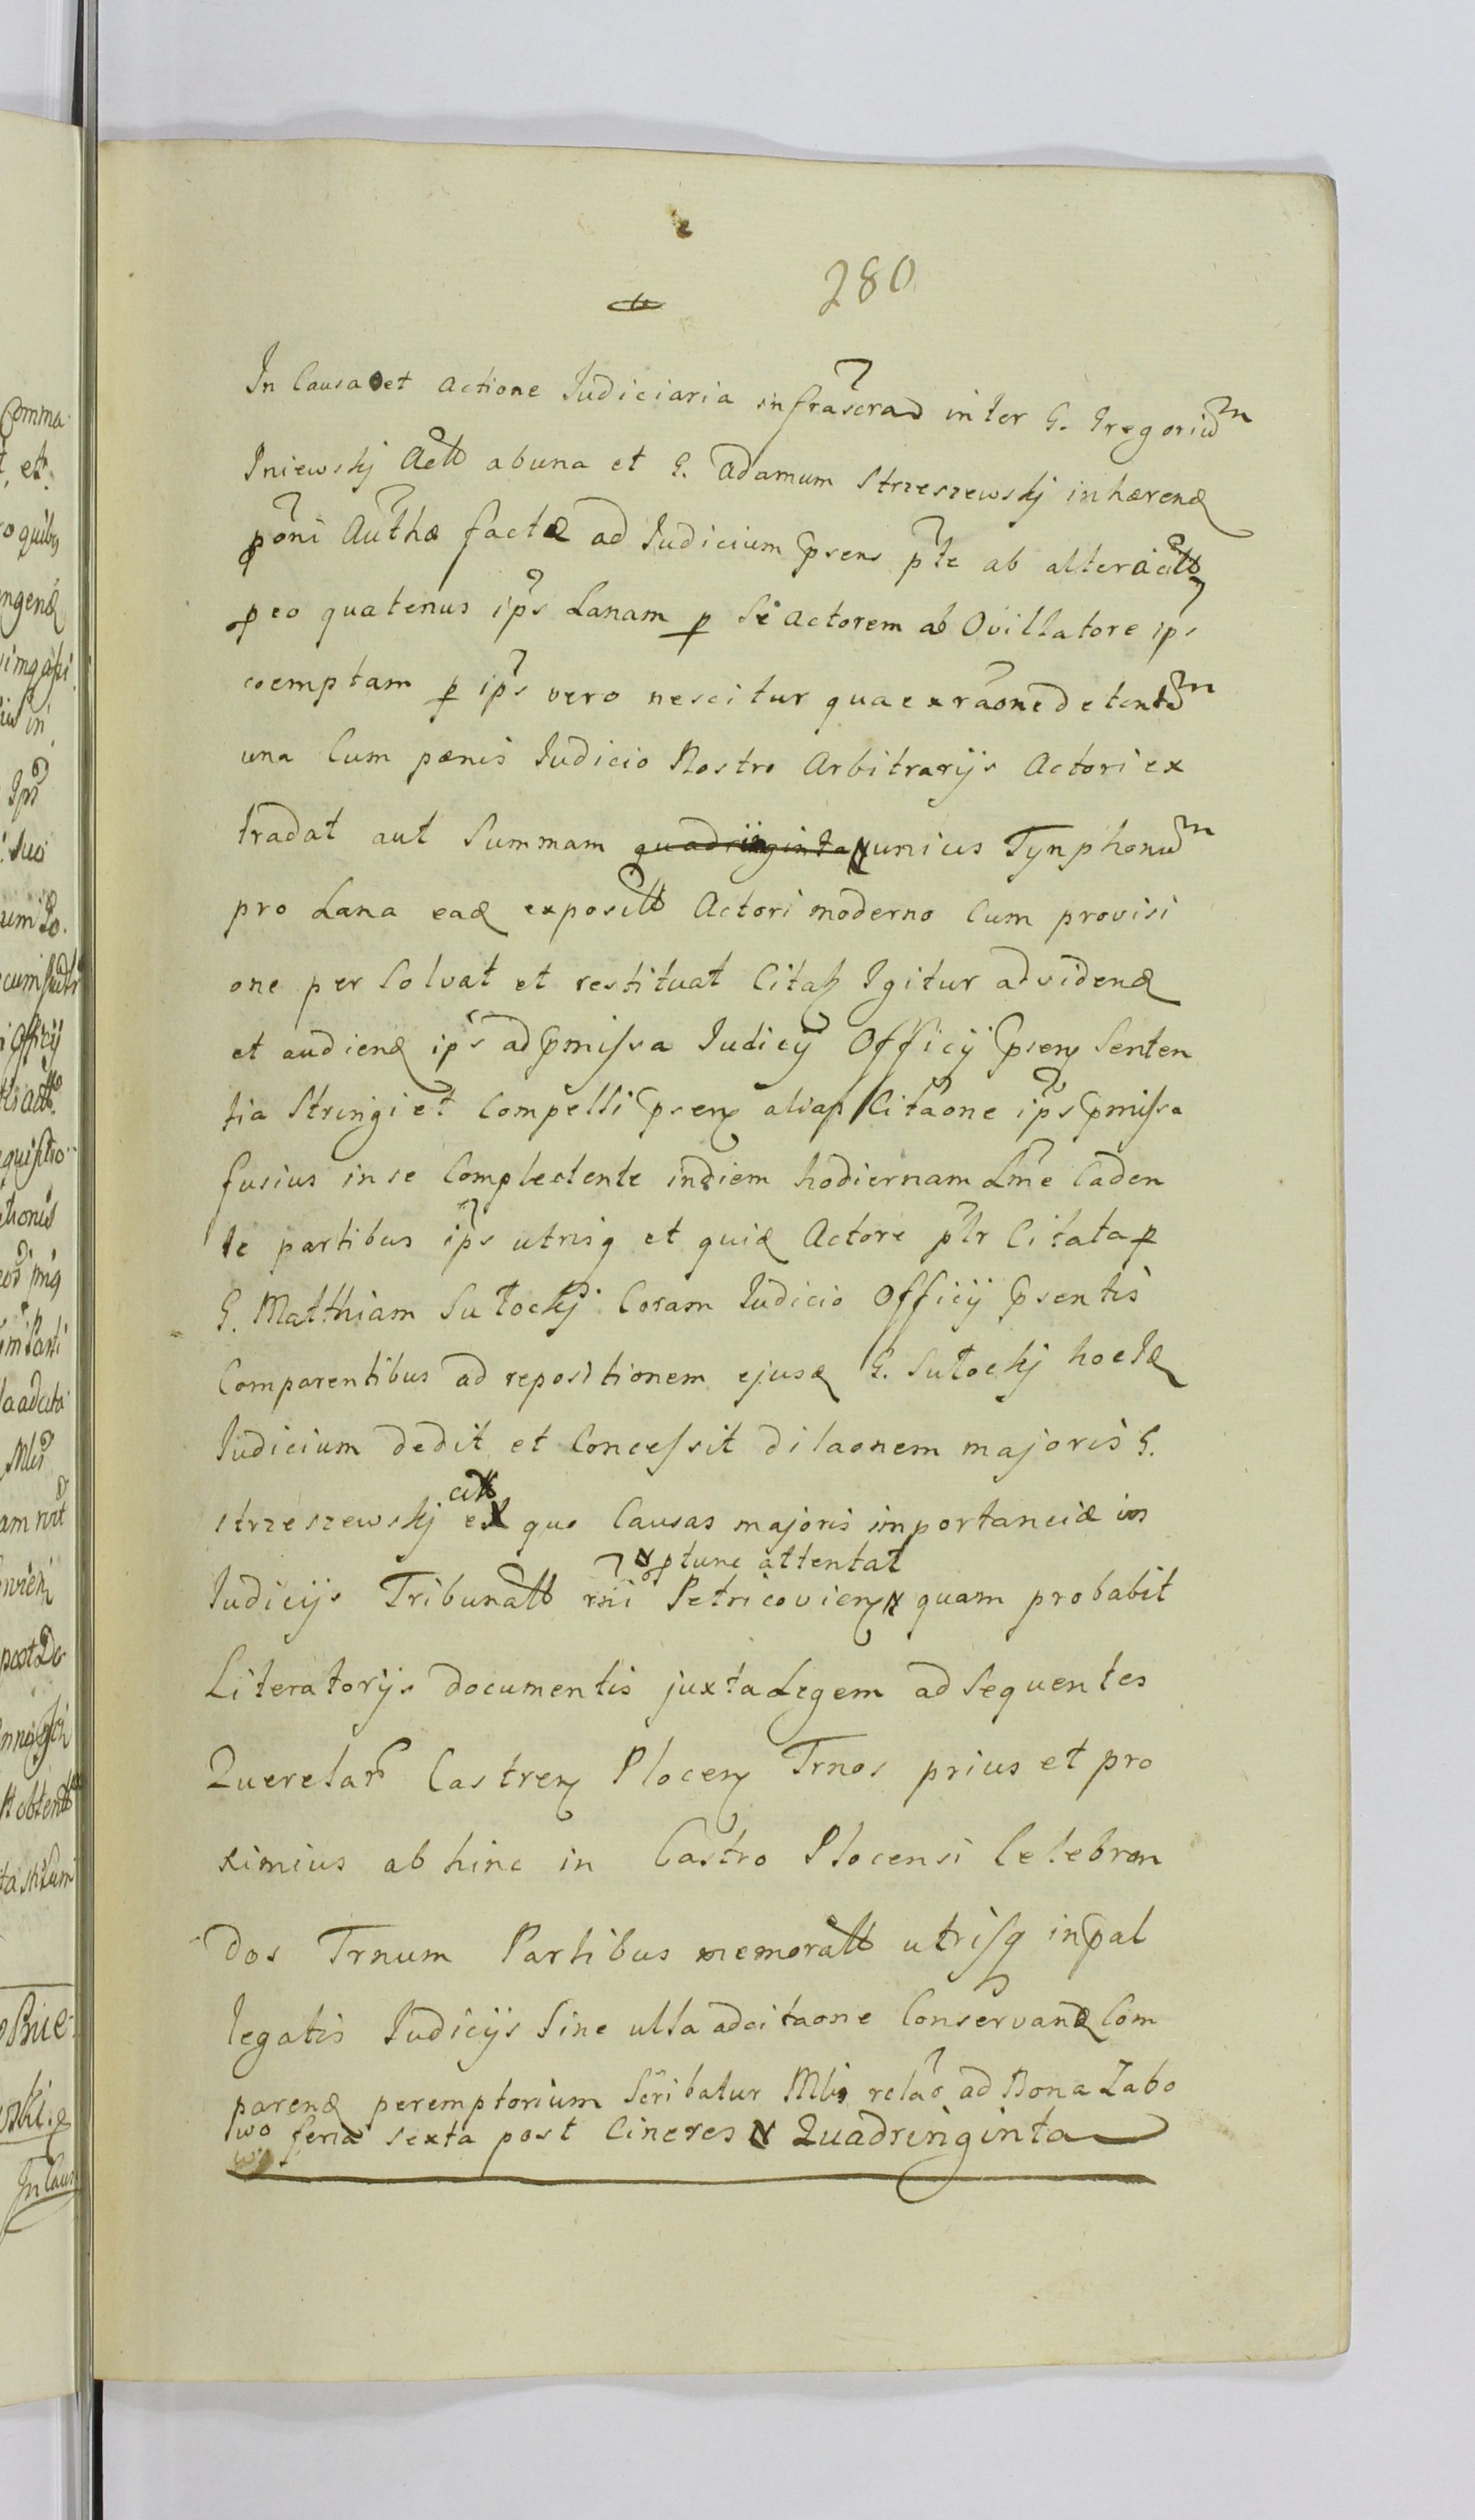 280
In Causa et actione Judiciaria infrascrad inter G. Gregoriu͠m
Gniewskj Actt abuna et G. Adamum Strzeszewskj inhærend
ponĩ Authæ factæ ad Judicium psens pte ab altera citt
peo quatenus ip̃s Lanam p se Actorem ab Ovillatore ip̃s
coemptam p ip̃s vero nescitur qua ex raõne detentam
una Cum pænis Judicio Nostro Arbitrarijs Actori ex
tradat aut Summam quadringinta unius Tynphonu͠m
pro Lana ead exposítt Actori moderno Cum provisi
one per Solvat et restituat Citaß Igitur ad vidend
et audiend ip̃s ad pmissa Judicÿ Officÿ psens Senten
tia Stringi et Compelli psens alias Citãone ip̃s pmissa
fusius in se Complectente indiem hodiernam Lme Caden
te partibus ip̃s utrisq et quid Actore pltr Citata p
G. Matthiam Sutockj Coram Judicio Officÿ psentis
Comparentibus ad repositionem ejusd G. Sutockj hocId
Judicium dedit et Concessit dilaonem majoris G.
citt
strzeszewskj ex quo Causas majoris importanciæ in
ptunc attentat
Judicijs Tribunalt rñi Petricovien quam probabit
Literatorijs documentis juxta Legem ad Sequentes
Querelar̃ Castren Plocen Trnos prius et pro
ximius ab hinc in Castro Plocensi Celebran
dos Trnum Partibus memoratt utrisq inpal
legatis Judicijs Sine ulla adcitaone Conservand Com
parend peremptorium Scribatur Mlis relão ad Bona Zabo
wo feria sexta post Cineres Quadringinta